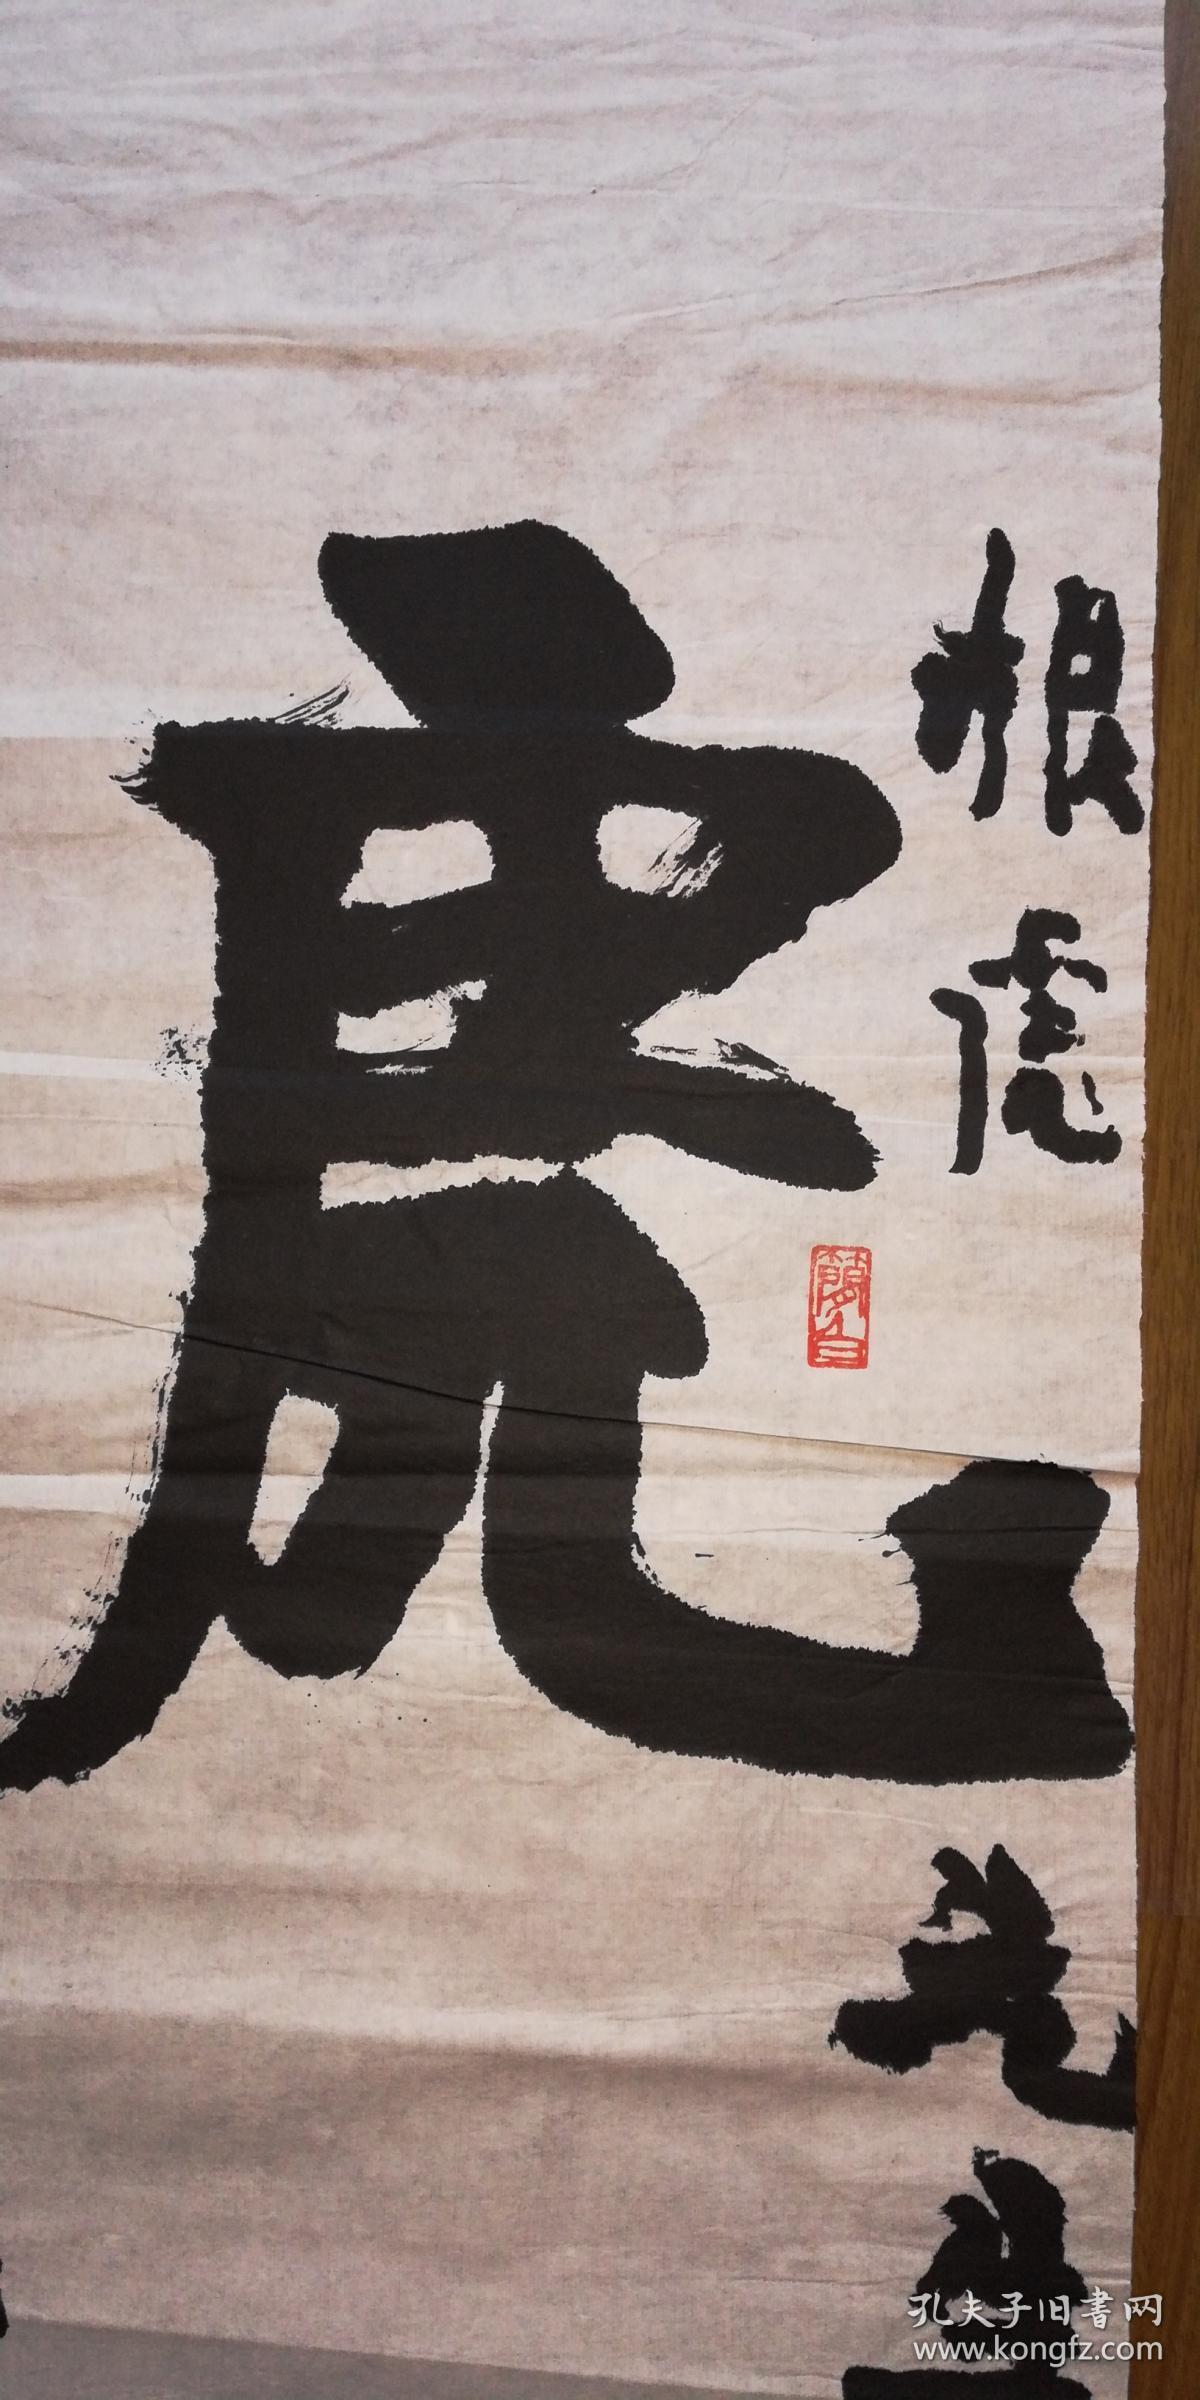 根虎
先生
虎
孔夫子旧书网
www.kongfz.com